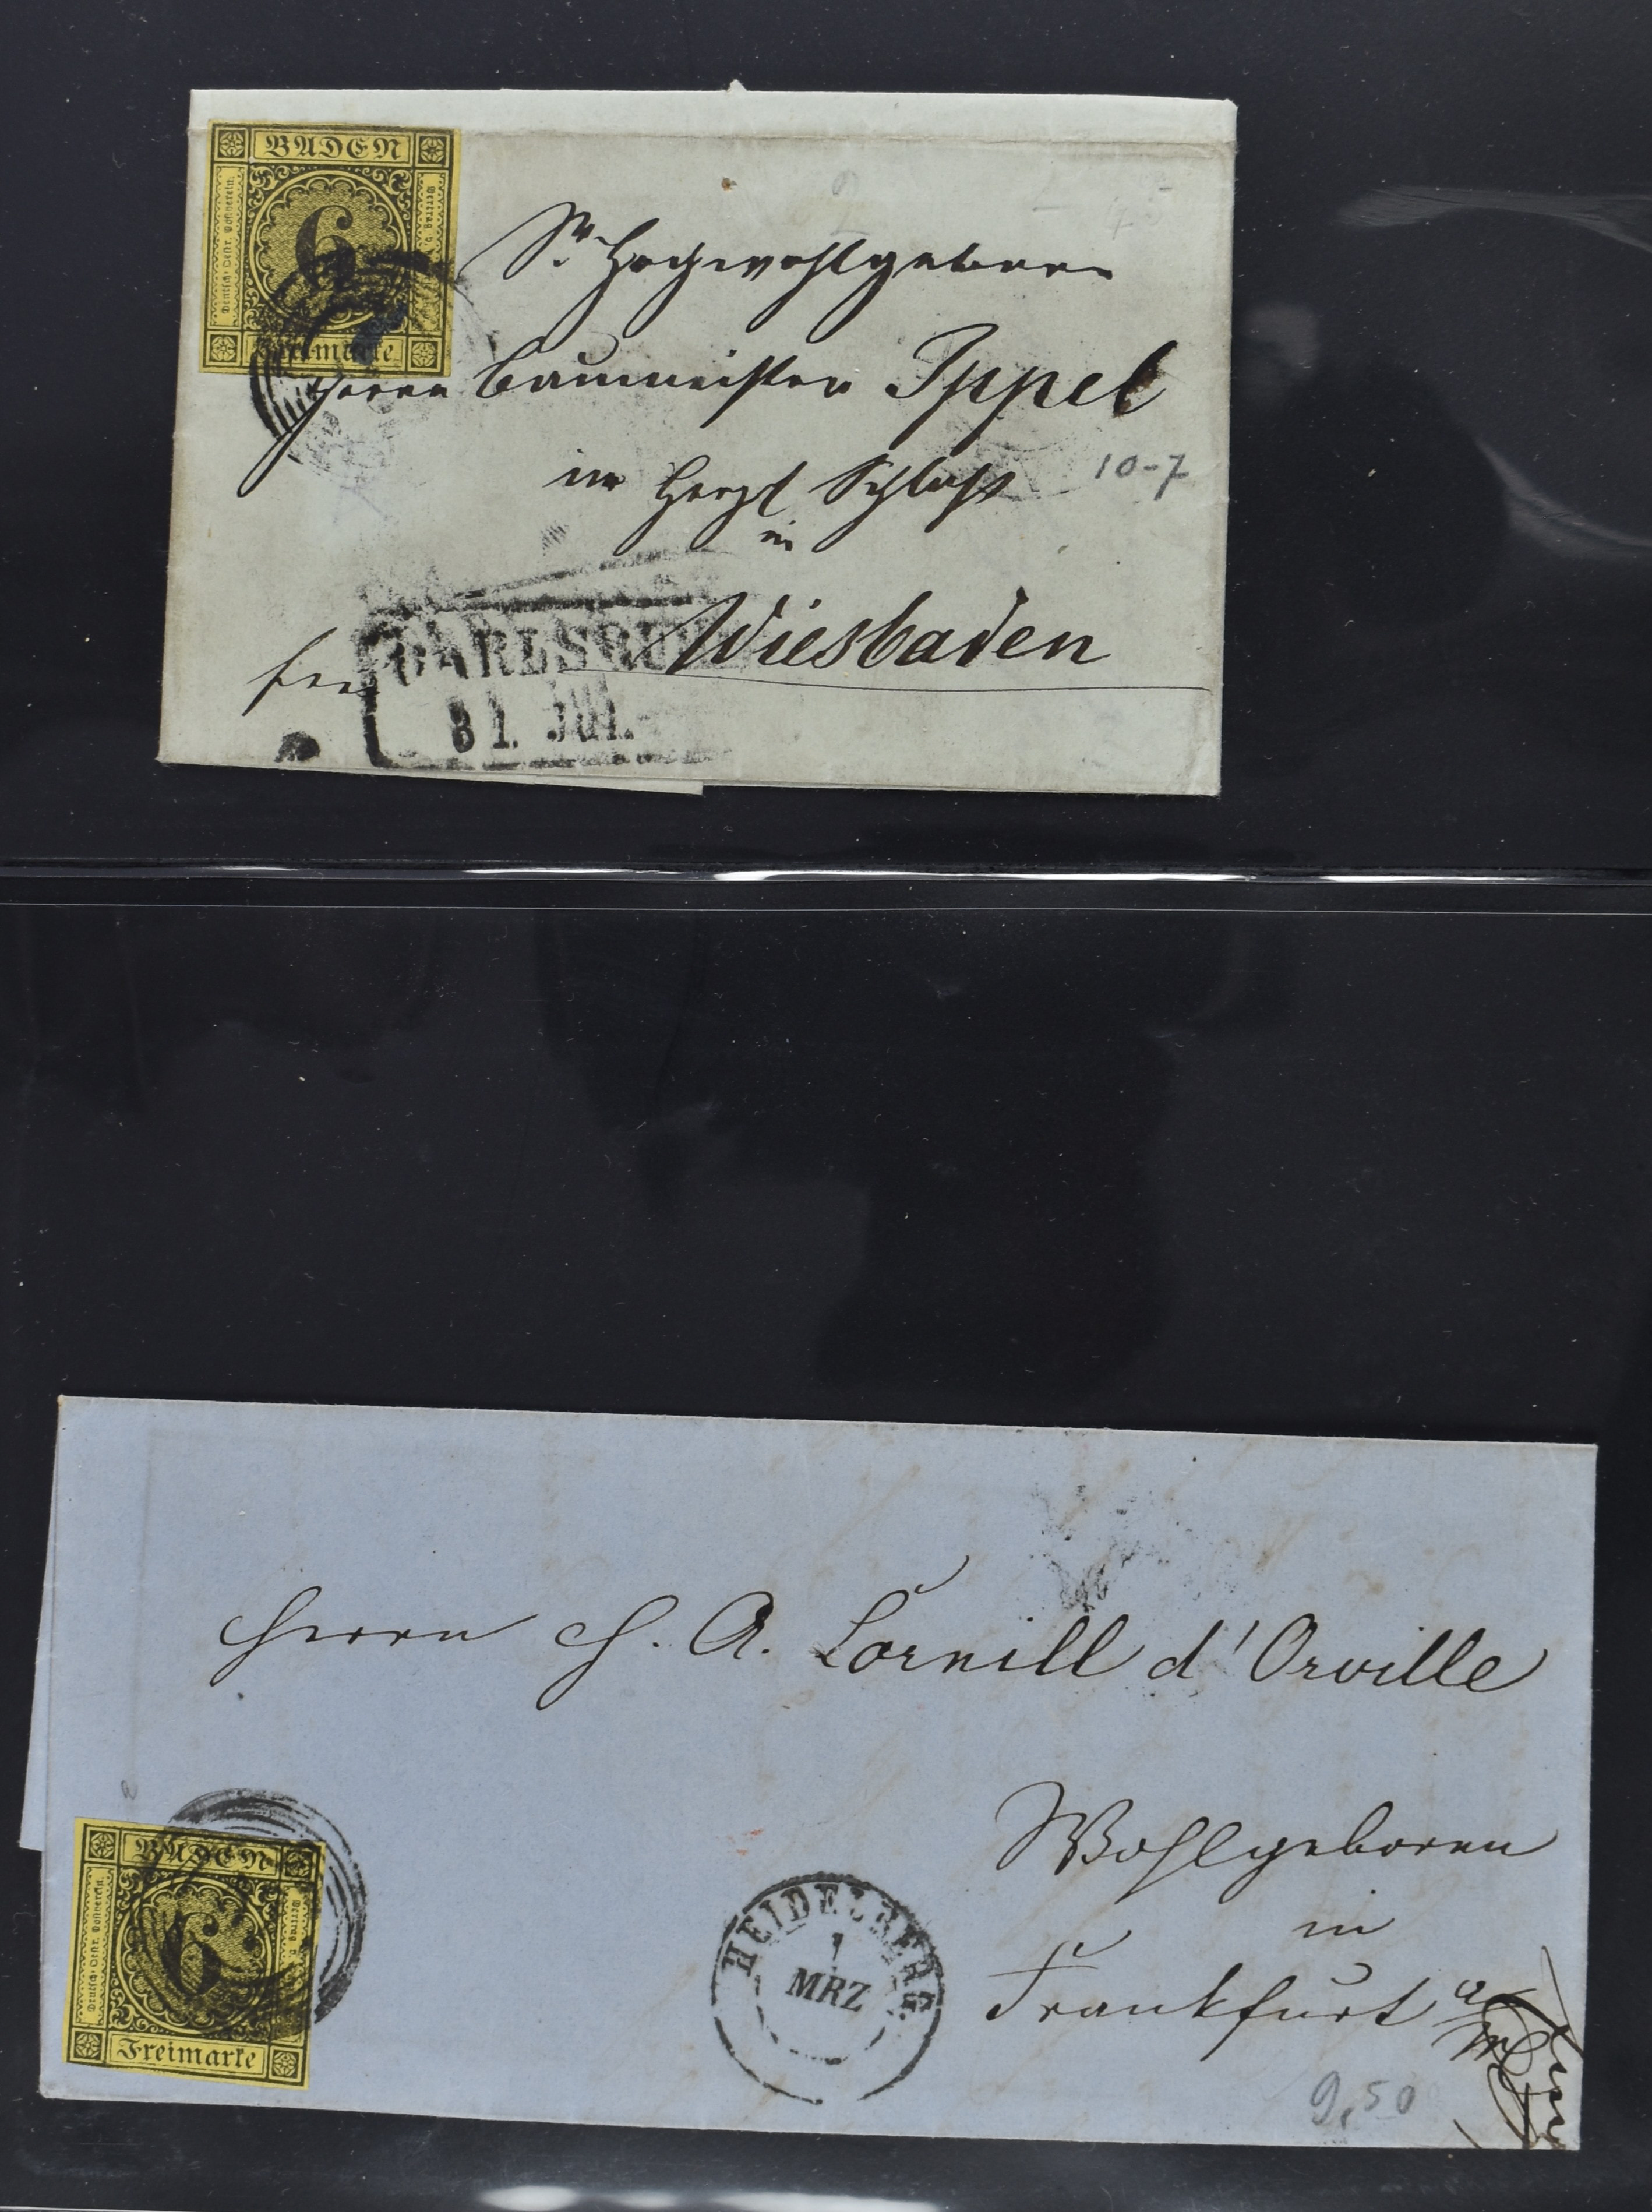 BADEN
Deutsch-Oestr. Postverein.
6
Freimarke
Sr Hochwohlgeboren
Herrn Baumeister Ippel
im Herzl Schloß
10-7
in
CARLSRU
31. JUL.
Wiesbaden
Herrn H. A. Cornill d'Orville
Wohlgeboren
in
Frankfurt a/M
BADEN
Deutsch-Oestr. Postverein.
6
Freimarke
HEIDELBERG
1
MRZ
9,50